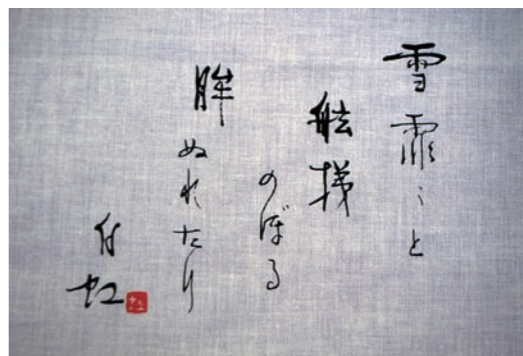 雪霏〻と
舷梯
のぼる
眸ぬれたり
白虹